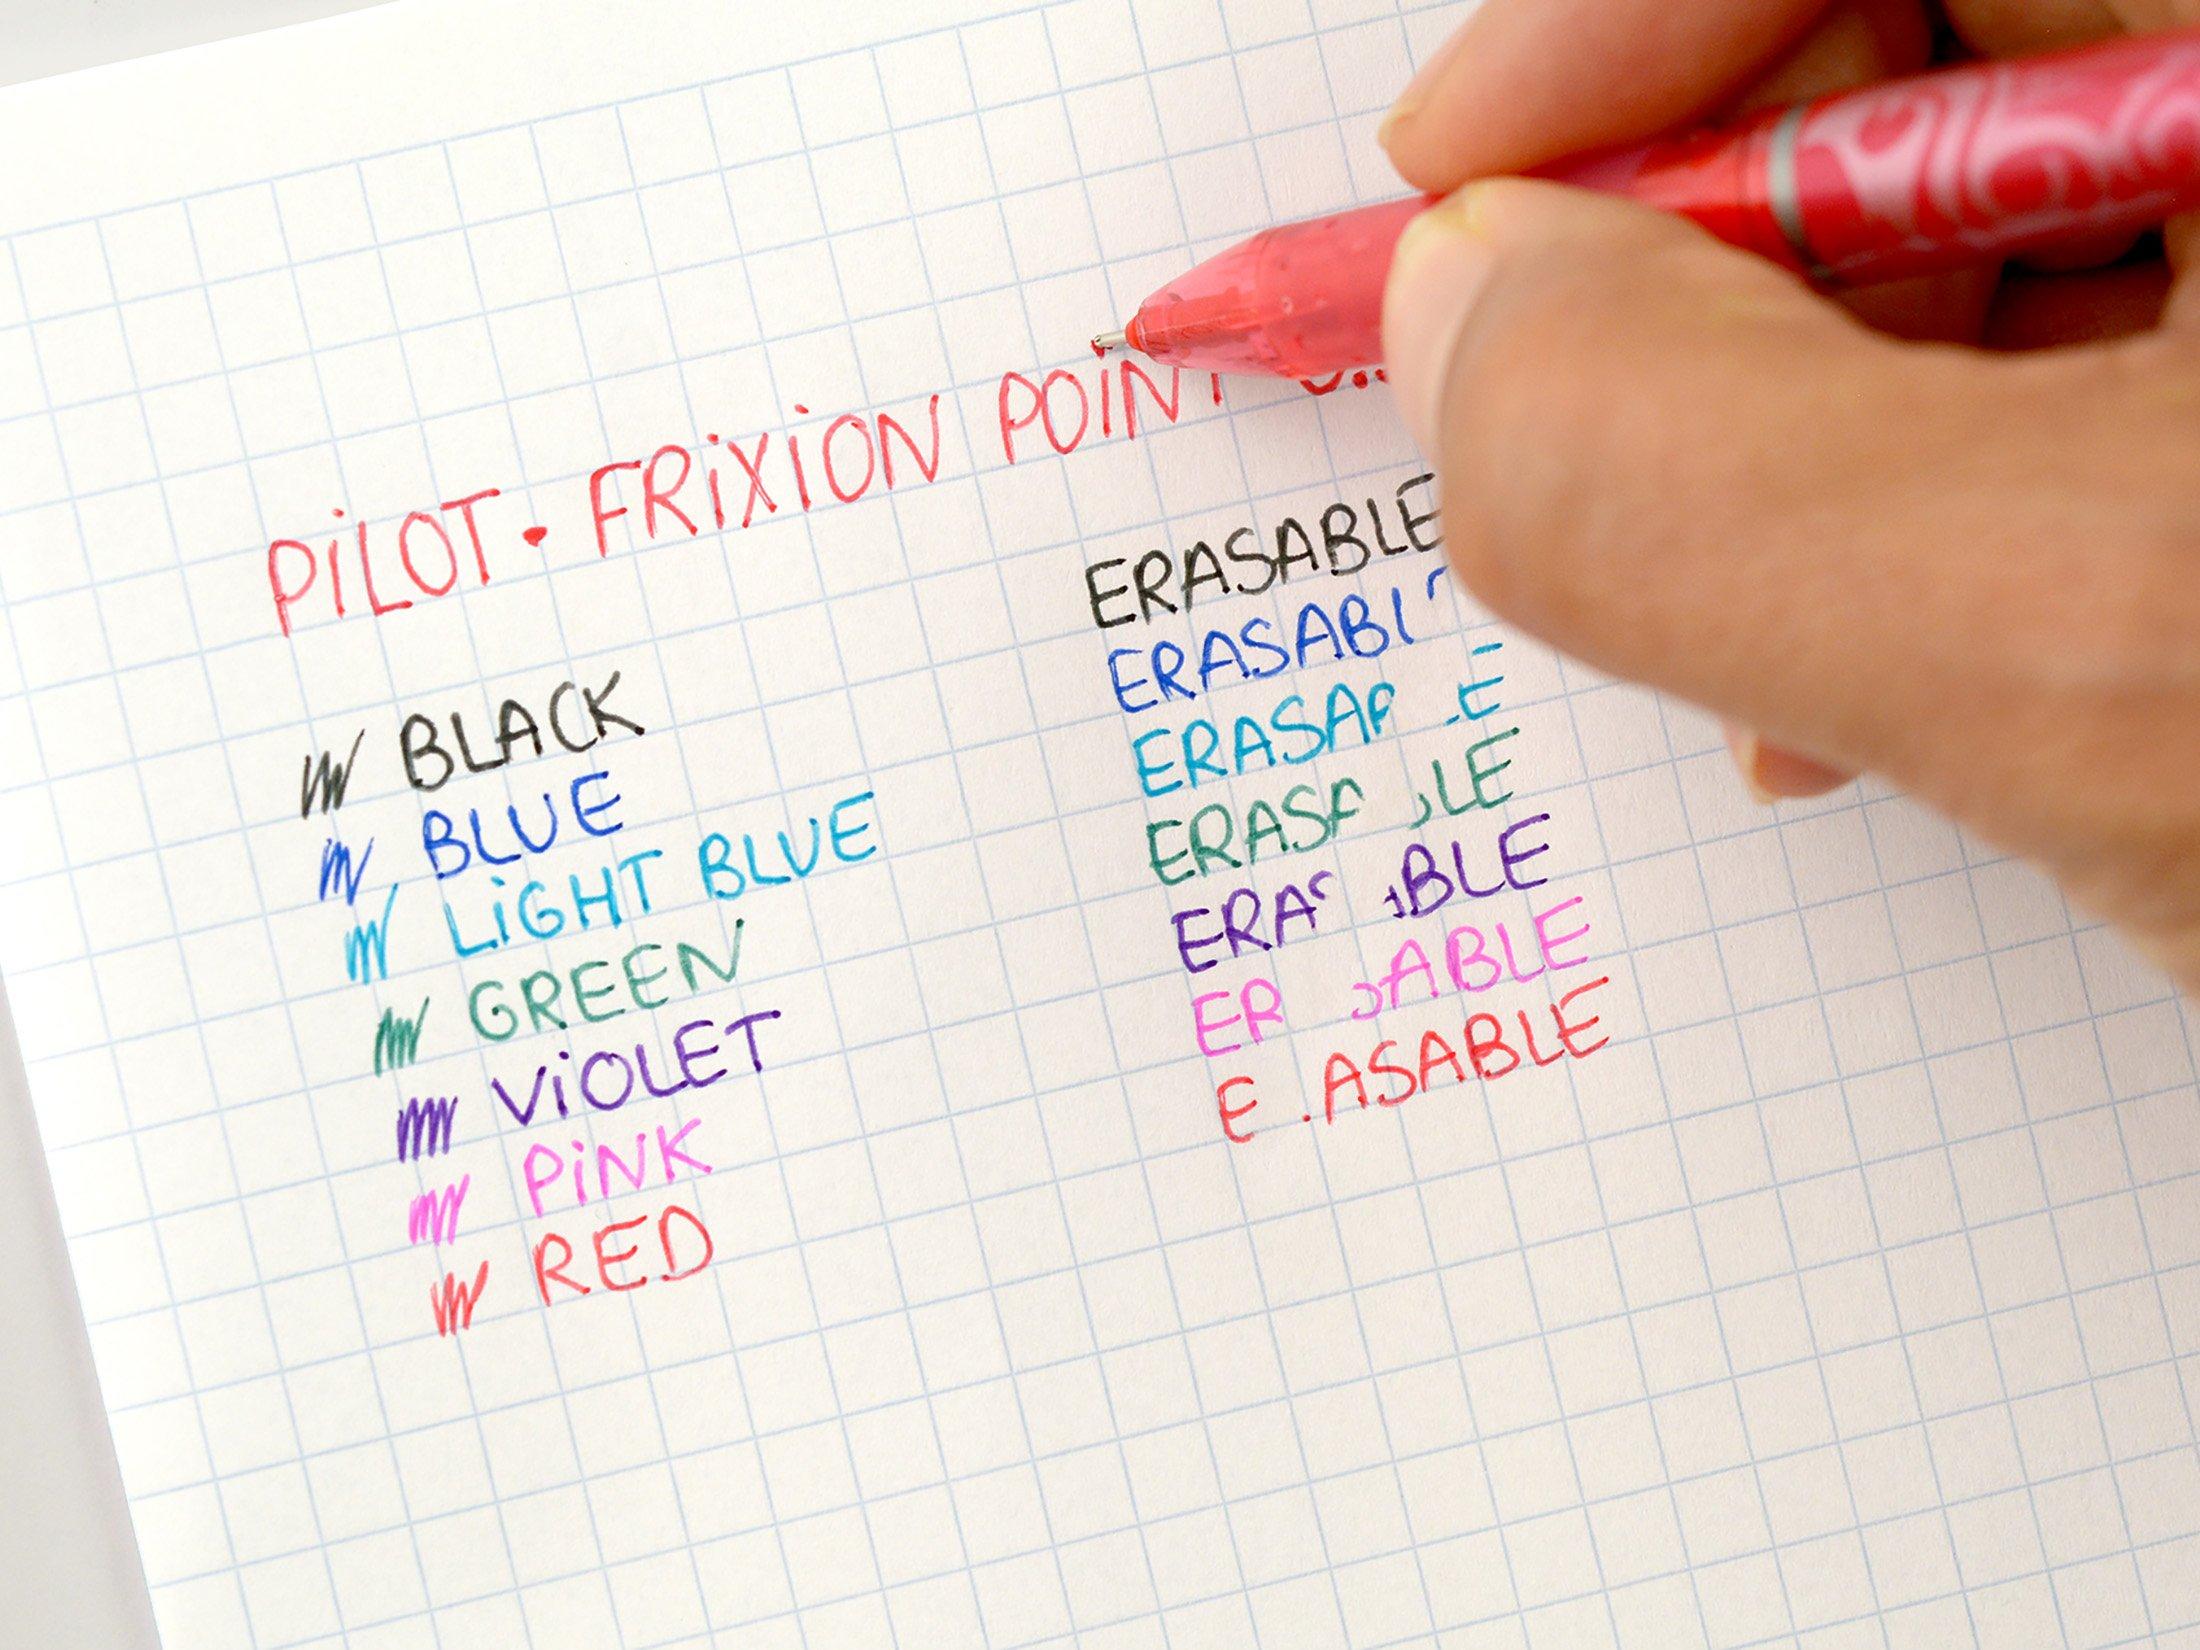 PiLOT • FRiXiON POiNT
BLACK
BLUE
LiGHT BLUE
GREEN
ViOLET
PiNK
RED
ERASABLE
ERASABL
ERASA LE
ERASA LE
ERA ABLE
ER SABLE
E ASABLE